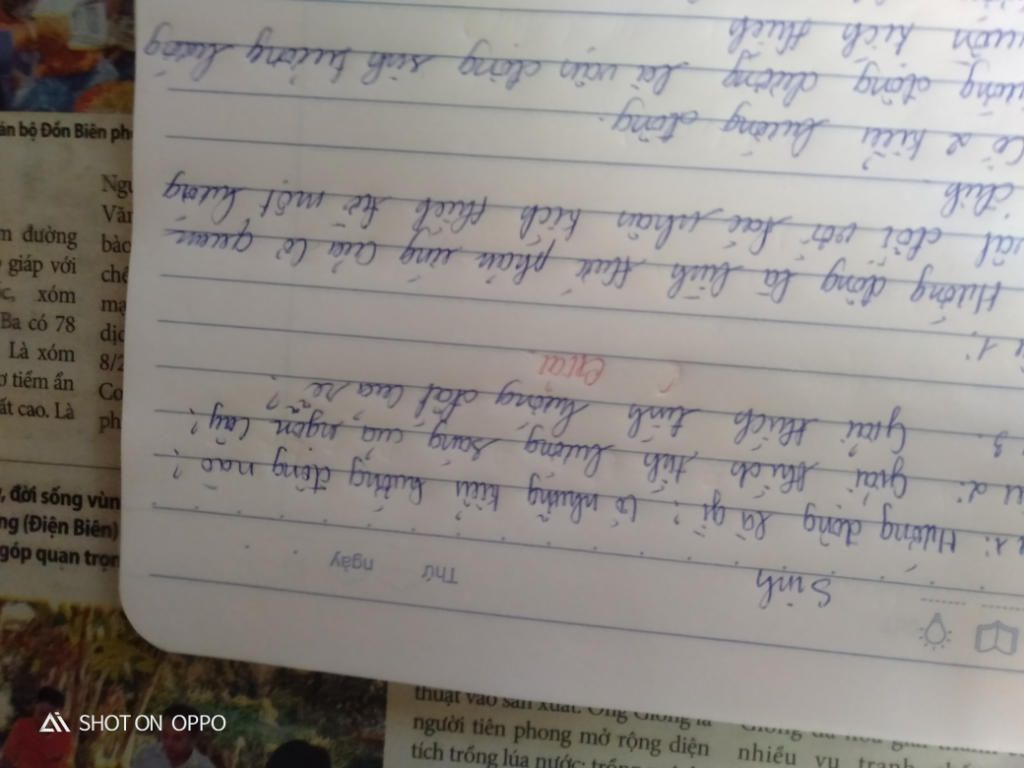 Sinh
Thứ ngày
1: Hướng động là gì? Có những kiểu hướng động nào?
u 2: Giải thích tính hướng sáng của ngọn cây?
3. Giải thích tính hướng đất của rễ?
Giải
1:
Hướng động là hình thức phản ứng của cơ quan
vật đối với tác nhân kích thích từ một hướng
định
Có 2 kiểu hướng động.
ướng động dương là vận động sinh trưởng hướng
nguồn kích thích
án bộ Đồn Biên ph
m đường
giáp với
c, xóm
Ba có 78
Là xóm
ơ tiềm ẩn
ất cao. Là
Ngu
Văn
bàc
chế
mạ
dịc
8/2
Co
ph
, đời sống vùn
ng (Điện Biên)
góp quan trọn
thuật vào sản xuất. Ông Giống là
người tiên phong mở rộng diện
tích trồng lúa nước; trồng
nhiều vụ tranh chấp
SHOT ON OPPO